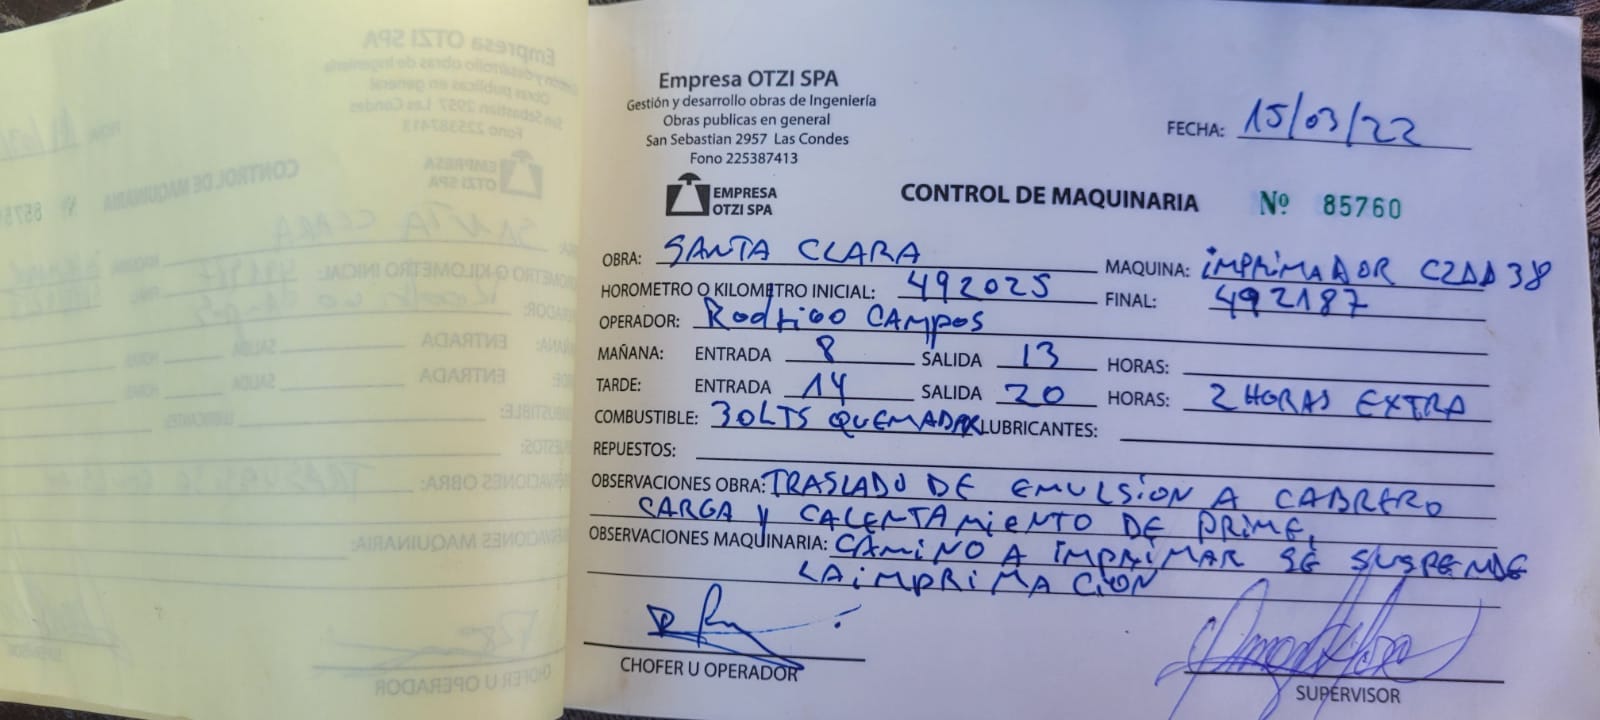 Empresa OTZI SPA
Gestión y desarrollo obras de Ingeniería
Obras publicas en general
San Sebastian 2957 Las Condes
Fono 225387413
EMPRESA
OTZI SPA
FECHA: 15/03/22
CONTROL DE MAQUINARIA Nº 85760
OBRA: SANTA CLARA MAQUINA: IMPRIMADOR CZDD38
HOROMETRO O KILOMETRO INICIAL: 492025 FINAL: 492187
OPERADOR: Rodrigo CAMPOS
MAÑANA: ENTRADA 8 SALIDA 13 HORAS:
TARDE: ENTRADA 14 SALIDA 20 HORAS: 2 HORAS EXTRA
COMBUSTIBLE: 30LTS QUEMADOR LUBRICANTES:
REPUESTOS:
OBSERVACIONES OBRA: TRASLADO DE EMULSION A CABRERO
CARGA Y CALENTAMIENTO DE PRIME,
OBSERVACIONES MAQUINARIA: CAMINO A IMPRIMAR SE SUSPENDE
LA IMPRIMACION
CHOFER U OPERADOR
SUPERVISOR